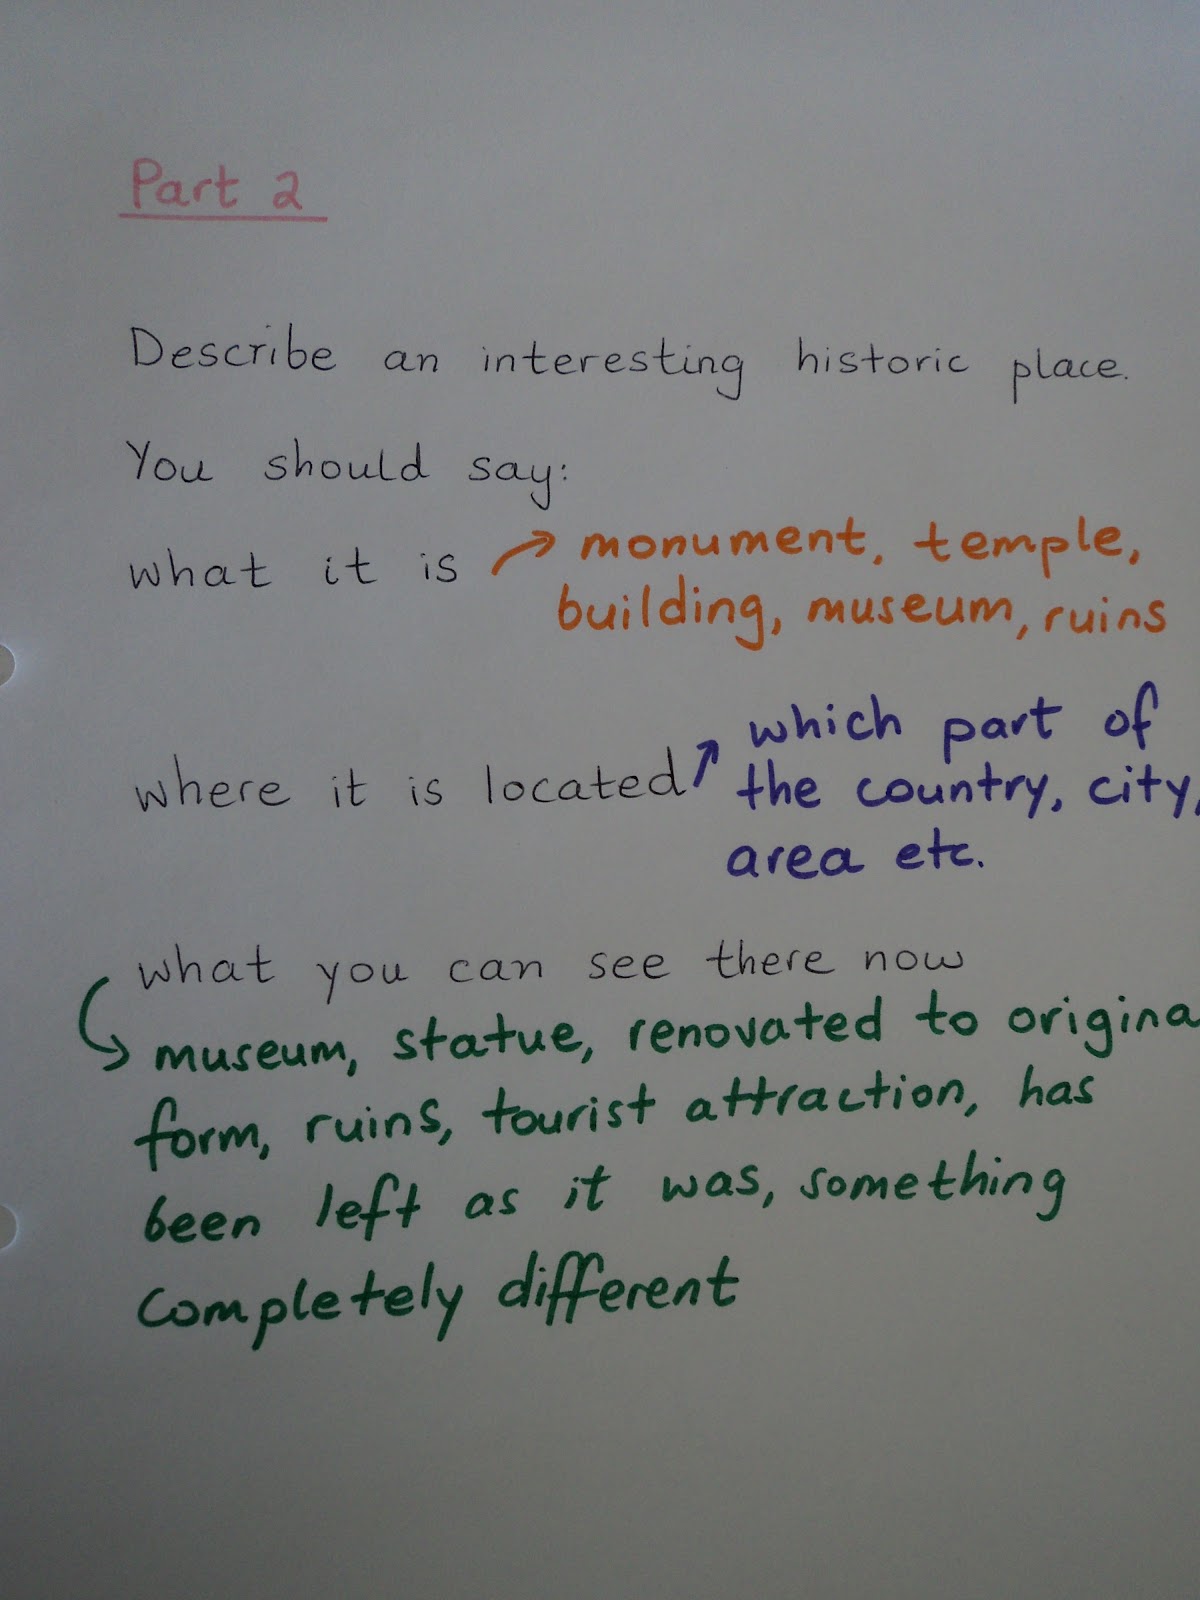 Part 2
Describe an interesting historic place.
You should say:
what it is → monument, temple,
building, museum, ruins
which part of
where it is located ↗ the country, city,
area etc.
what you can see there now
museum, statue, renovated to origina
form, ruins, tourist attraction, has
been left as it was, something
completely different